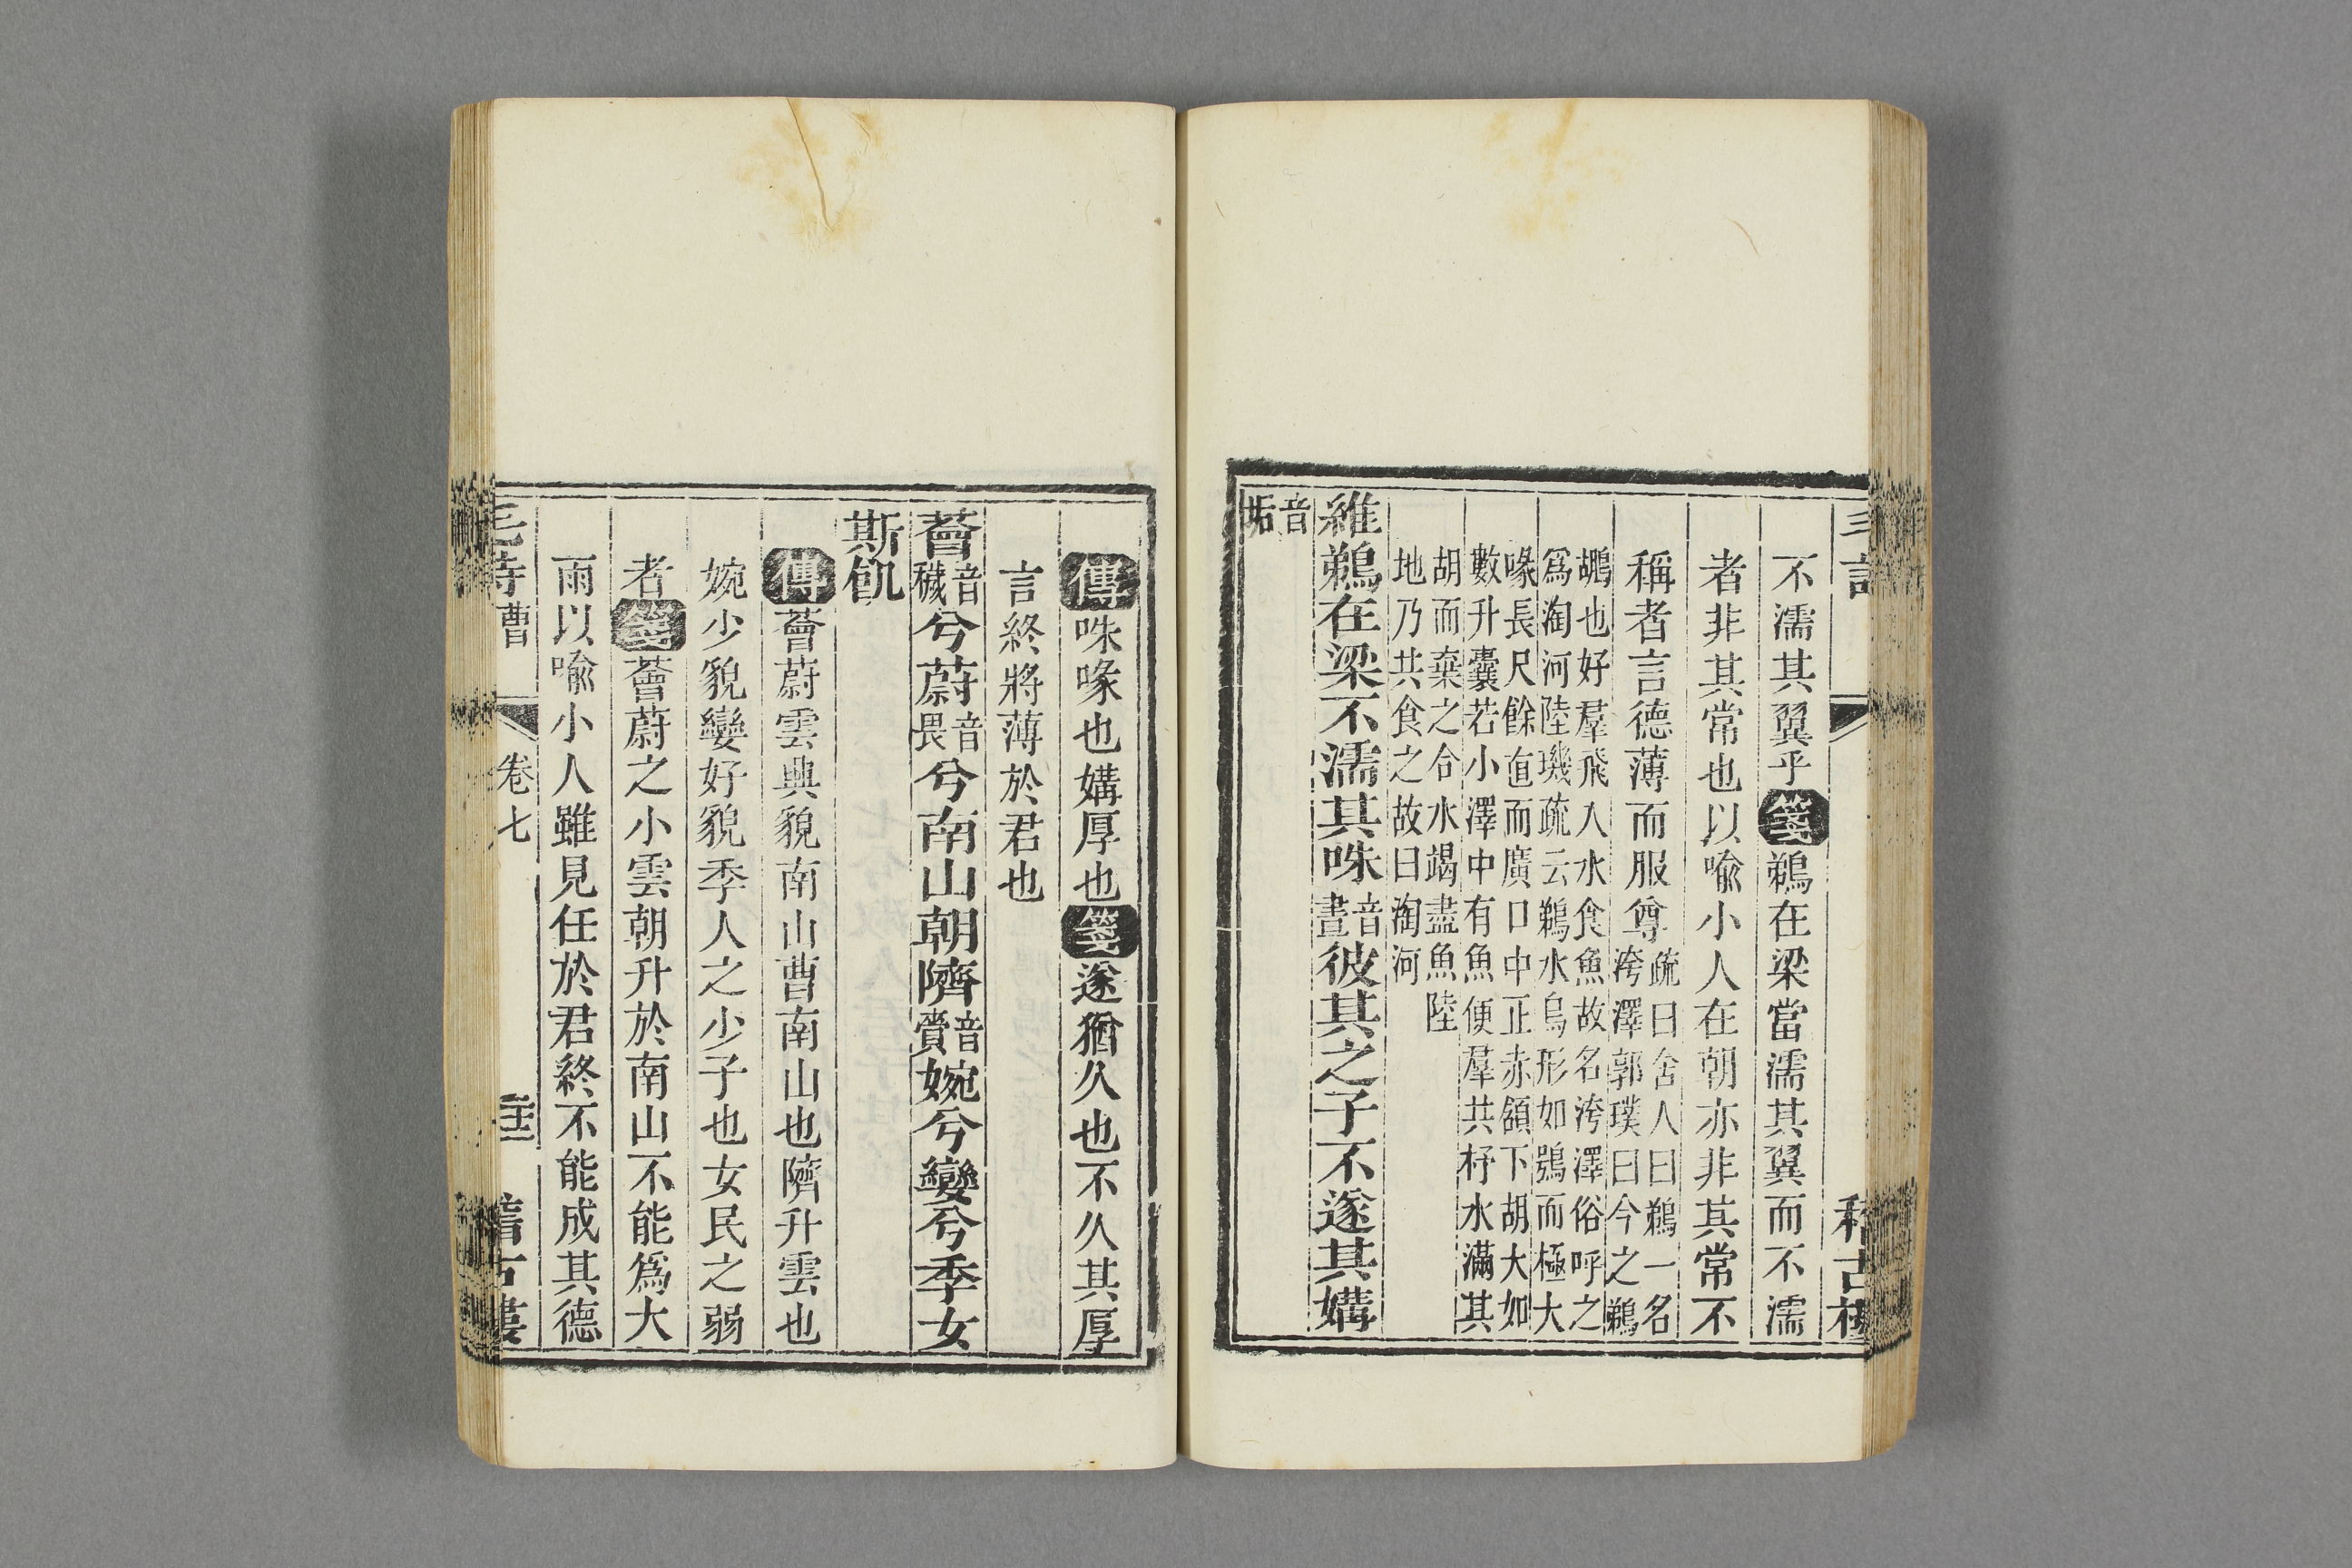 毛詩
稽古樓
不濡其翼乎箋鵜在梁當濡其翼而不濡
者非其常也以喻小人在朝亦非其常不
稱者言德薄而服尊
疏曰舍人曰鵜一名
洿澤郭璞曰今之鵜
鶘也好羣飛入水食魚故名洿澤俗呼之
爲淘河陸璣疏云鵜水鳥形如鶚而極大
喙長尺餘直而廣口中正赤頷下胡大如
數升囊若小澤中有魚便羣共抒水滿其
胡而棄之合水竭盡魚陸
地乃共食之故曰淘河
維鵜在梁不濡其咮音晝彼其之子不遂其媾
音垢
傳咮喙也媾厚也箋遂猶久也不久其厚
言終將薄於君也
薈音穢兮蔚音畏兮南山朝隮音賷婉兮孌兮季女
斯飢
傳薈蔚雲典貌南山曹南山也隮升雲也
婉少貌孌好貌季人之少子也女民之弱
者箋薈蔚之小雲朝升於南山不能爲大
雨以喻小人雖見任於君終不能成其德
毛詩
曹
卷七
稽古樓